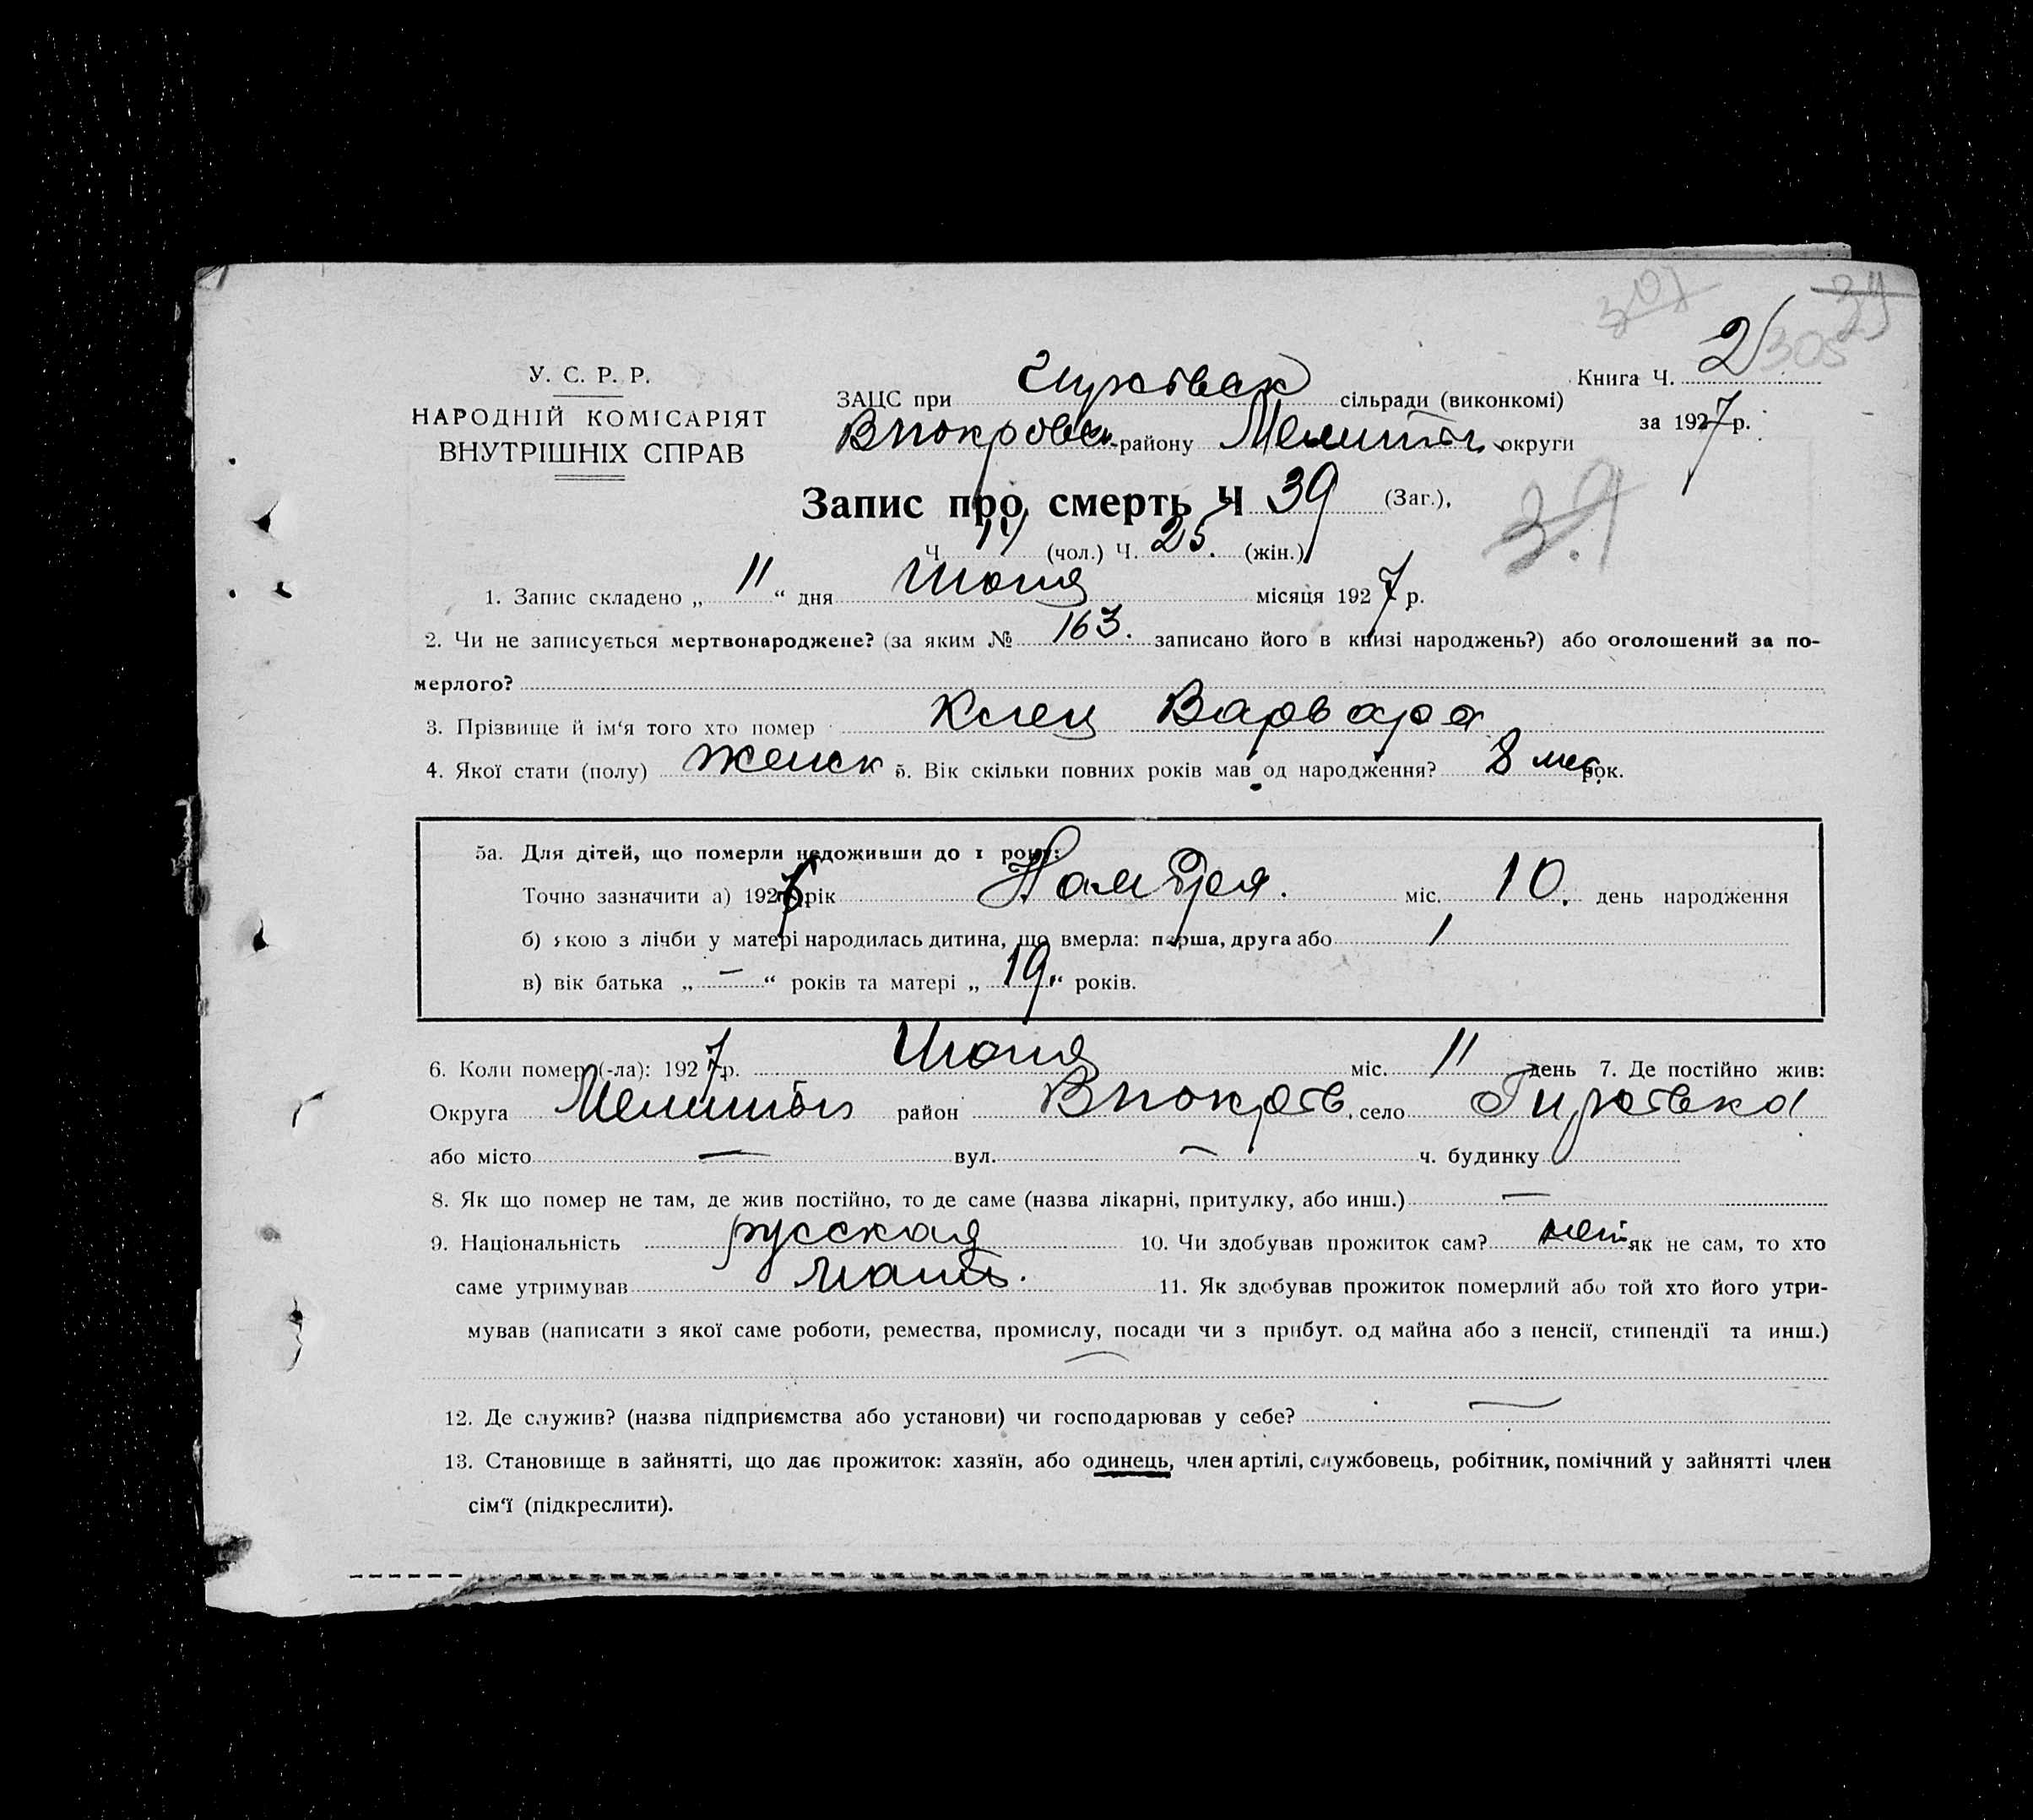 307 39
У. С. Р. Р.
НАРОДНІЙ КОМІСАРІЯТ
ВНУТРІШНІХ СПРАВ
Книга Ч. 2 305
ЗАЦС при Гирсовск сільради (виконкомі)
за 1927 р.
В покровск. району Мелитоп. округи
Запис про смерть Ч 39 (Заг.),
39
Ч 14 (чол.) Ч. 25. (жін.)
1. Запис складено „ 11 “ дня Июня місяця 1927 р.
2. Чи не записується мертвонароджене? (за яким № 163. записано його в книзі народжень?) або оголошений за по-
мерлого?
3. Прізвище й ім‘я того хто помер Клец Варвара
4. Якої стати (полу) женск 5. Вік скільки повних років мав од народження? 8 мес. рок.
5а. Для дітей, що померли недоживши до 1 року:
Точно зазначити а) 1926 рік Ноября. міс. 10. день народження
б) якою з лічби у матері народилась дитина, що вмерла: перша, друга або 1
в) вік батька „ — “ років та матері „ 19. “ років.
6. Коли помер (-ла): 1927 р. Июня міс. 11 день 7. Де постійно жив:
Округа Мелитоп район В покров. село Гирсовка
або місто — вул. — ч. будинку
8. Як що помер не там, де жив постійно, то де саме (назва лікарні, притулку, або инш.) —
9. Національність русская 10. Чи здобував прожиток сам? нет як не сам, то хто
саме утримував мать. 11. Як здобував прожиток померлий або той хто його утри-
мував (написати з якої саме роботи, ремества, промислу, посади чи з прибут. од майна або з пенсії, стипендії та инш.)
—
12. Де служив? (назва підприємства або установи) чи господарював у себе? —
13. Становище в зайнятті, що дає прожиток: хазяїн, або одинець, член артілі, службовець, робітник, помічний у зайнятті член
сім‘ї (підкреслити).